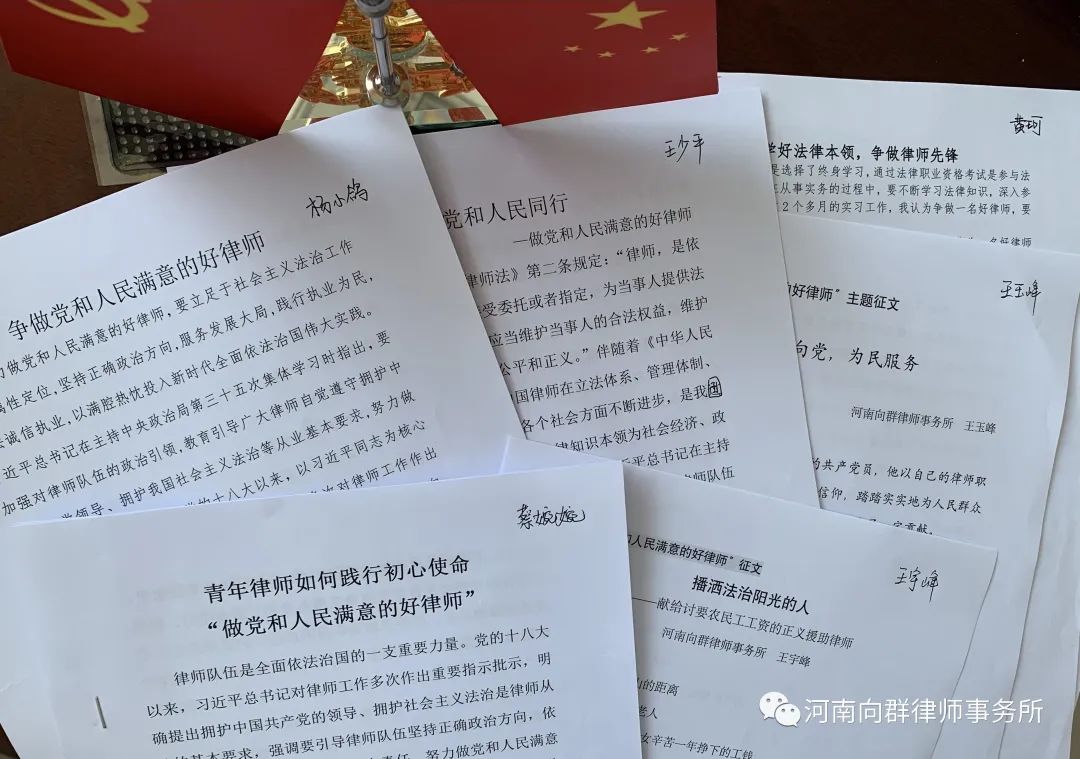 杨小鸽
争做党和人民满意的好律师
做党和人民满意的好律师，要立足于社会主义法治工作
属性定位，坚持正确政治方向，服务发展大局，践行执业为民，
诚信执业，以满腔热忱投入新时代全面依法治国伟大实践。
近平总书记在主持中央政治局第三十五次集体学习时指出，要
加强对律师队伍的政治引领，教育引导广大律师自觉遵守拥护中
党领导、拥护我国社会主义法治等从业基本要求，努力做
的十八大以来，以习近平同志为核心
次对律师工作作出
王少平
党和人民同行
—做党和人民满意的好律师
律师法》第二条规定：“律师，是依
受委托或者指定，为当事人提供法
应当维护当事人的合法权益，维护
公平和正义。”伴随着《中华人民
国律师在立法体系、管理体制、
各个社会方面不断进步，是我团
律知识本领为社会经济、政
近平总书记在主持
律师队伍
黄珂
学好法律本领，争做律师先锋
是选择了终身学习，通过法律职业资格考试是参与法
从事实务的过程中，要不断学习法律知识，深入参
2个多月的实习工作，我认为争做一名好律师，要
一名好律师
王玉峰
的好律师”主题征文
向党，为民服务
河南向群律师事务所 王玉峰
的共产党员，他以自己的律师职
信仰，踏踏实实地为人民群众
贡献。
蔡姣姣
青年律师如何践行初心使命
“做党和人民满意的好律师”
律师队伍是全面依法治国的一支重要力量。党的十八大
以来，习近平总书记对律师工作多次作出重要指示批示，明
确提出拥护中国共产党的领导、拥护社会主义法治是律师从
的基本要求，强调要引导律师队伍坚持正确政治方向，依
责任，努力做党和人民满意
王宇峰
人民满意的好律师”征文
播洒法治阳光的人
——献给讨要农民工工资的正义援助律师
河南向群律师事务所 王宇峰
山的距离
老人
女辛苦一年挣下的工钱
河南向群律师事务所